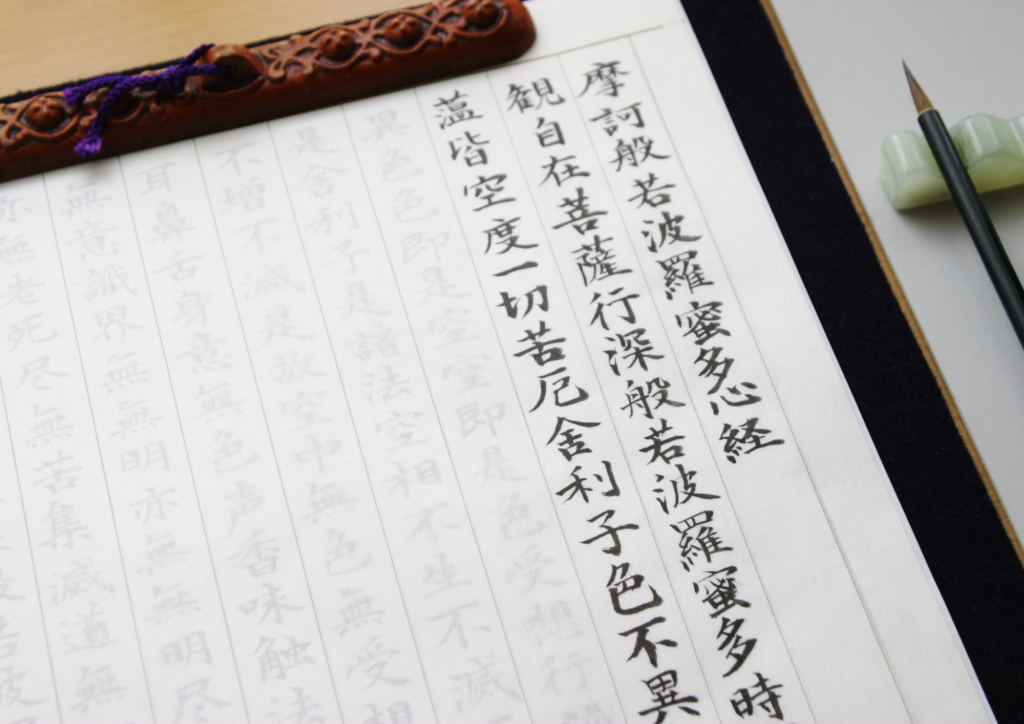 摩訶般若波羅蜜多心経
観自在菩薩行深般若波羅蜜多時
薀皆空度一切苦厄舎利子色不異
異色色即是空空即是色受想行識
是舎利子是諸法空相不生不滅
不増不減是故空中無色無受想
耳鼻舌身意無色声香味触法
無意識界無無明亦無無明尽
亦無老死尽無苦集滅道無
若波